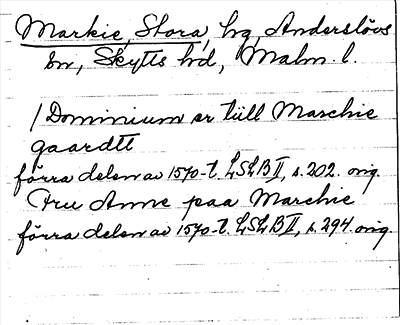 Markie, Stora, hg, Anderslövs
sn, Skytts hd, Malm. l.
/ Dominium er till Marchie
gaardtt
förra delen av 1570-t. LSLB II, s. 202. orig.
Fru Anne paa Marchie
förra delen av 1570-t. LSLB II, s. 294. orig.